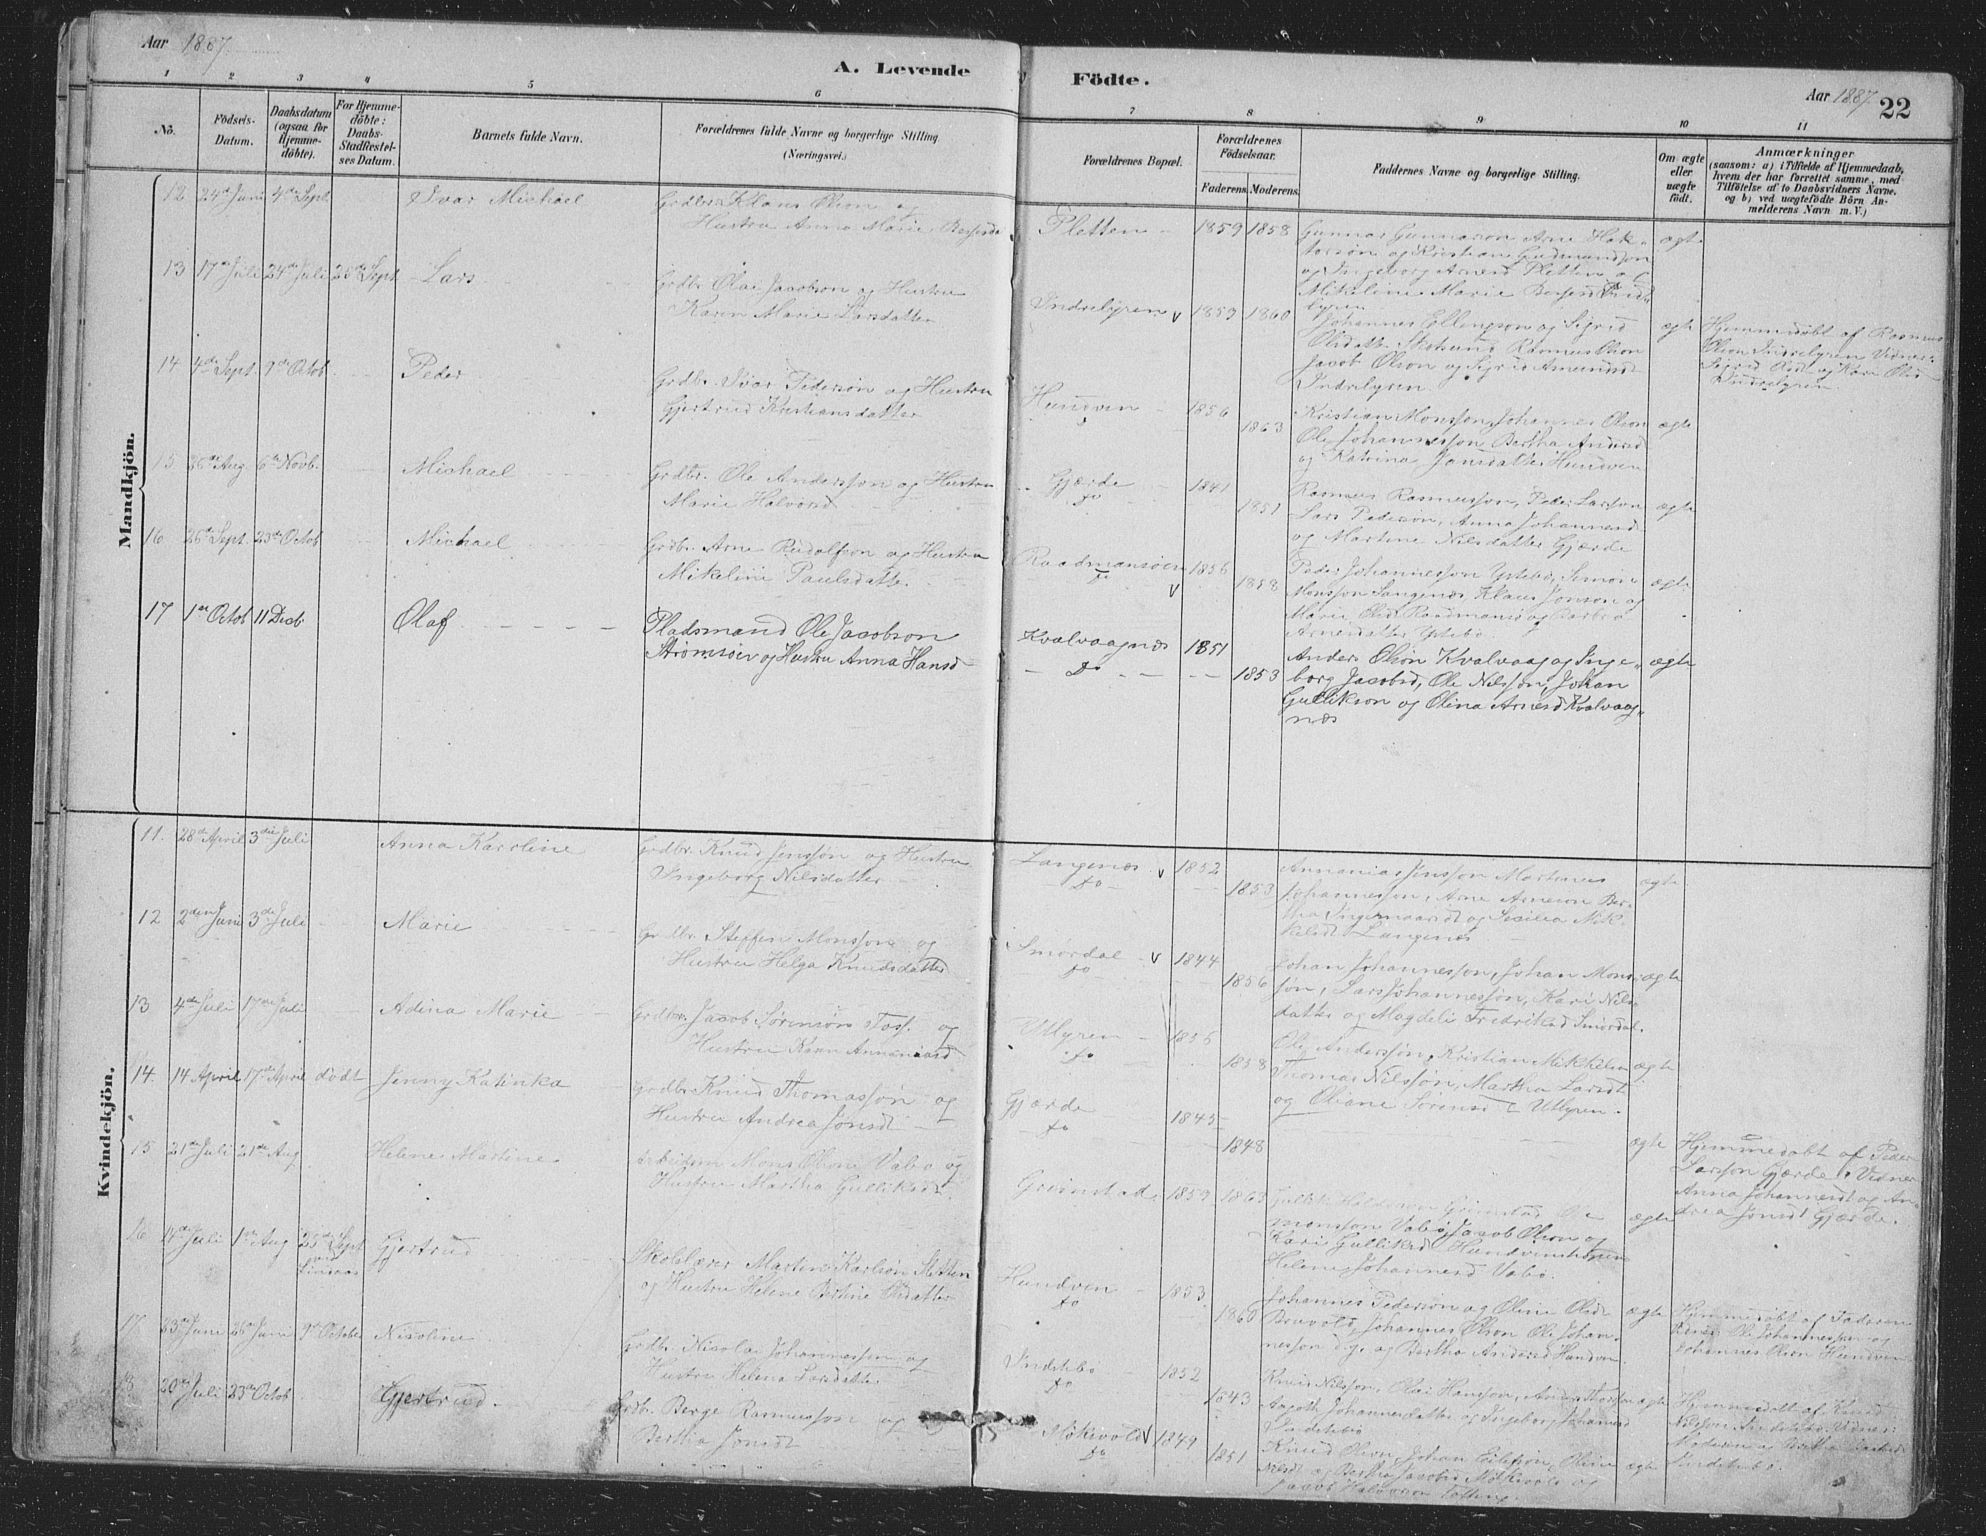 Aar 1887
A. Levende
Födte.
Aar 1887.
22
1 2 3 4 5 6 7 8 9 10 11
No.
Födsels-
Datum.
Daabsdatum
(ogsaa for
Hjemme-
döbte).
For Hjemme-
döbte:
Daabs-
Stadfæstel-
ses Datum.
Barnets fulde Navn.
Forældrenes fulde Navne og borgerlige Stilling.
(Næringsvei.)
Forældrenes Bopæl.
Forældrenes
Födselsaar.
Faderens. Moderens.
Faddernes Navne og borgerlige Stilling.
Om ægte
eller
uægte
födt.
Anmærkninger
(saasom: a) i Tilfælde af Hjemmedaab,
hvem der har forrettet samme, med
Tilföielse af to Daabsvidners Navne,
og b) ved uægtefödte Börn An-
melderens Navn m. V.)
Mandkjön.
12 24de Juni 4de Sept. Ivar Michael
Grdbr. Klaus Olson og
Hustru Anna Marie
Pletten 1859 1858
Gunnar Gunnarson Arne
og Kristian Gudmundson
og Ingeborg Arnesd Pletten
Mikeline Marie
ægte
13 17de Juli 24de Juli 25de Sept Lars
Grdbr. Olai Jacobson og Hustru
Karen Marie Larsdatter
Indrelyren 1859 1860
Johannes Ellingson og Sigrid
Olsdatt. Rasmus Olson
Jacob Olson og Sigrid Amundsd
Indrelyren.
ægte
Hjemmedöbt af Rasmus
Olson Indrelyren Vidner
Sigrid og Kari Olsd
Indrelyren.
14 4de Sept. 9de Octob Peder
Grdbr. Ivar Pederson og Hustru
Gjertrud Kristiansdatter
Hundven 1856
do 1863
Kristian Monsson, Johannes Olson
Ole Johannesson, Bertha Andersd
og Katrina Jansdatter Hundven
ægte
15 26de Aug. 6te Novb. Michael
Grdbr. Ole Andersson og Hustru
Marie Halvorsd
Gjærde 1841
do 1851
Rasmus Rasmusson, Peder Larson
Lars Pederson, Anna Johannesd
og Martine Nilsdatter Gjærde
ægte
16 26de Sept. 23de Octob Michael
Grdbr. Arne Rudolfson og Hustru
Mikeline Paulsdatter
Raadmansöen 1856
do 1858
Peder Johannesson Ystebö, Simon
Monsson Langenæs, Klaus Jonson og
Marie Olsd Raadmansö og Barbro
Arnesdatter Ystebö.
ægte
17 1de Octob 11 Decb. Olaf
Pladsmand Ole Jacobson
Strömsöen og Hustru Anna Hansd
Kvalvaagnæs 1851
Do 1853
Anders Olson Kvalvaag og Inge-
borg Jacobsd, Ole Nilsson, Johan
Gullikson og Olina Arnesd Kvalvaag-
næs
ægte
Kvindekjön.
11. 28de April 3die Juli Anna Karoline
Grdbr. Knud Jensson og Hustru
Ingeborg Nilsdatter
Langenæs 1852
do 1853
Annanias Jensson Martinus
Johannesson, Arne Arneson Ber-
tha Ingemaarsdt og Sesilia Mik-
kelsdt Langenæs
ægte
12 2den Juni 3de Juli Marie
Grdbr. Steffen Monsson og
Hustru Helga Knudsdatter
Smördal 1844
do 1856
Johan Johannesson, Johan Mons-
son, Lars Johannesson, Kari Nils-
datter og Magdeli Fredriksd Smördal.
ægte
13 4de Juli 17de Juli Adina Marie
Grdbr. Jacob Sörenson Toss. og
Hustru Karn Annaniasd
Utlyren 1856
do 1858
Ole Andersson, Kristian Mikkelsen
Thomas Nilsson, Martha Larsdt
og Oliane Sörensd Utlyren.
ægte
14. 14 April 17de April dödt Jenny Katinka
Grdbr. Knud Thomasson og
Hustru Andrea Jonsdt
Gjærde 1845
do 1848
ægte
Hjemmedöbt af Peder
Larsson Gjærde. Vidner
Anna Johannesdt og An-
drea Jonsdt Gjærde.
15 21de Juli 21de Aug Helene Martine.
Arbeidsm Mons Olson Vabö og
Hustru Martha Gulliksd.
Grimstad 1859 1863
Gullik Haldorson Grimstad Ole
Monsson Vabö, Jacob Olson og
Kari Gulliksd Hundven
Helene Johannesd Vabö.
ægte
16 Juli 1de Aug 25de Sept Gjertrud
Lindaas
Skolelærer Martin Karlson Sletten
og Hustru Helene Bertine Olsdatter
Hundven 1853
do 1860
Johannes Pederson og Oline Olsdt
Bruvold, Johannes Olson Ole Johan-
nesson og Bertha Andersd Hundven
ægte
Hjemmedöbt af Faderen
Ole Johannesson og
Johannes Olson Hundven
17. 23de Juni 26de Juni 9de October Nicoline
Grdbr. Nicolai Johannesson og
Hustru Helena Larsdatter
Indstebö 1852
do 1843
Knud Nilsson, Olai Hansson, Anders
Aagoth Johannesdatter og Ingeborg Johannesd
Indstebö
ægte
Hjemmedöbt af Knud
Nilsson Indstebö. Vidner:
Moderen og Bertha
Indstebö.
18 20de Juli 23de Octob Gjertrud.
Grdbr. Berge Rasmusson og
Bertha Jonsdt
Mökevold 1849
Do 1851
Knud Olson, Johan Eilifson, Oline
Nilsdt og Bertha Jacobsd Mökevold og
Jacob Halvorson
ægte